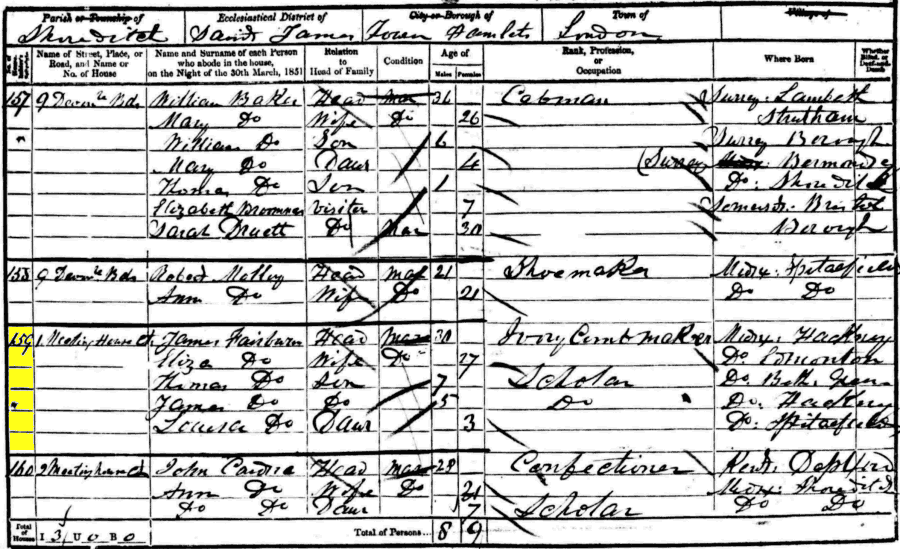 Parish or Township of Ecclesiastical District of City or Borough of Town of Village of
Shoreditch Saint James Tower Hamlets London
Name of Street, Place, or Road, and Name or No. of House
Name and Surname of each Person who abode in the house, on the Night of the 30th March, 1851
Relation to Head of Family
Condition
Age of
Males Females
Rank, Profession, or Occupation
Where Born
Whether Blind, or Deaf-and-Dumb
157 9 William Baker Head Mar 36 Cabman Surrey: Lambeth
Mary Do Wife Do 26
William Do Son 6 Surrey Borough
Mary Do Daur 4 Surrey
Thomas Do Son 1 Do: Shoreditch
Elizabeth Visiter 7 Somerset Bristol
Sarah Do Mar 30 Borough
158 9 Robert Head Mar 21 Shoemaker Midx: Spitalfields
Ann Do Wife Do 21 Do Do
159 1 Meeting House Ct James Fairburn Head Mar 30 Ivory Comb maker Midx: Hackney
Eliza Do Wife Do 27 Do Edmonton
Thomas Do Son 7 Scholar Do: Beth: Green
" James Do Do 5 Do Do: Hackney
Louisa Do Daur 3 Do: Spitalfields
160 2 Meeting house Ct John Head Mar 28 Confectioner Kent: Deptford
Ann Do Wife Do 21 Midx: Shoreditch
Do Do Daur 7 Scholar Do Do
Total of Houses I 3 U 0 B 0 Total of Persons 8 9